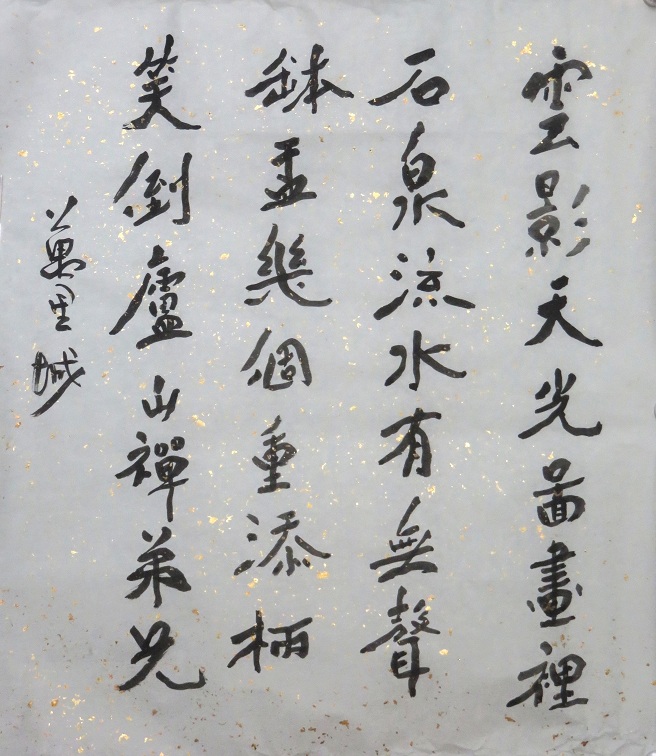 雲影天光啚畫裡
石泉流水有無聲
缽盂幾個重添柄
笑倒廬山禪弟兄
萬里城